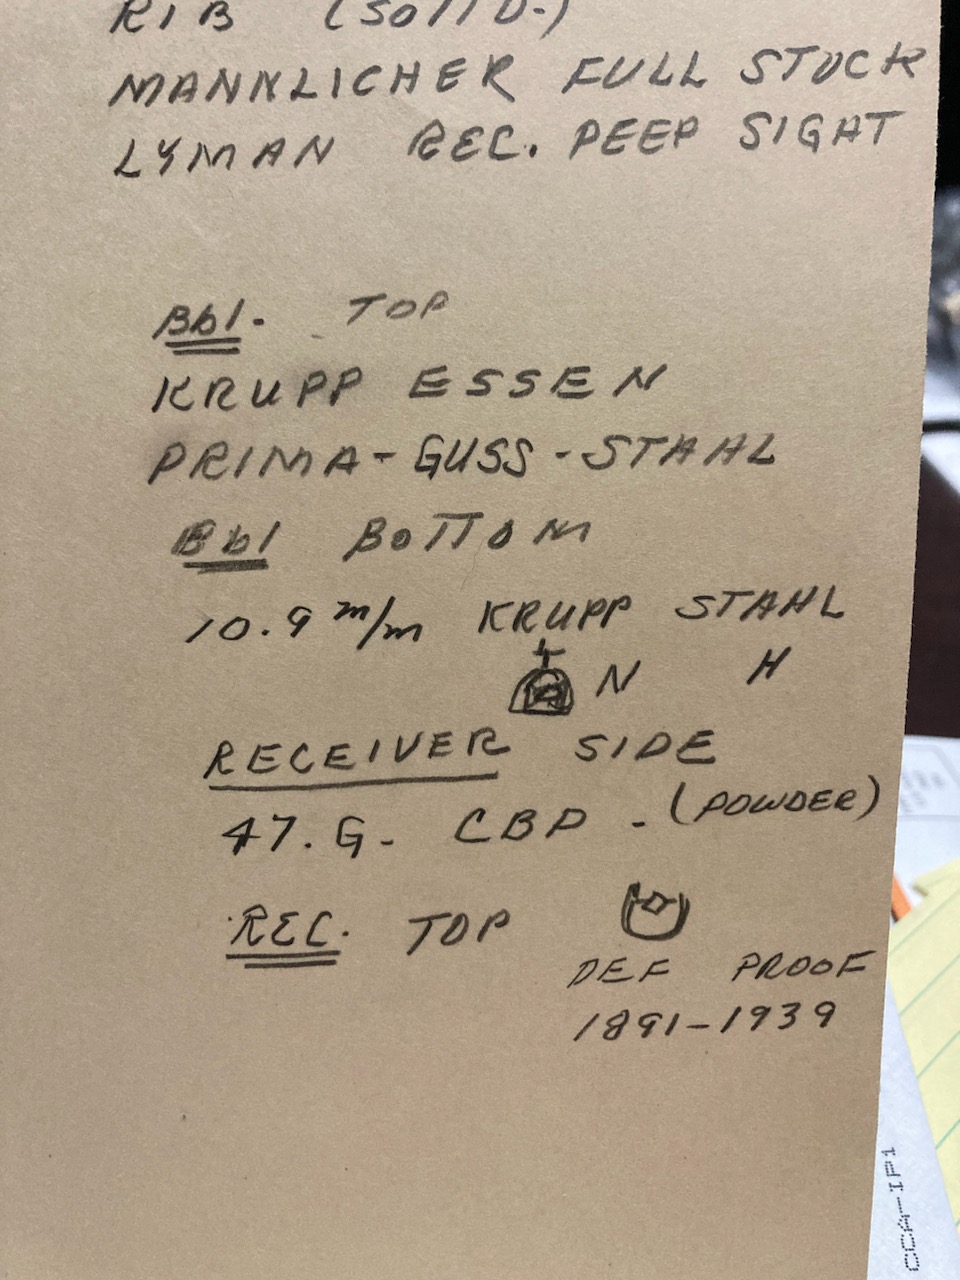 RIB (SOLID.)
MANNLICHER FULL STOCK
LYMAN REC. PEEP SIGHT
Bbl. TOP
KRUPP ESSEN
PRIMA-GUSS-STAHL
Bbl BOTTOM
10.9 m/m KRUPP STAHL
N H
RECEIVER SIDE
47. G. CBP. (POWDER)
REC. TOP
DEF PROOF
1891-1939
CCA-IP1